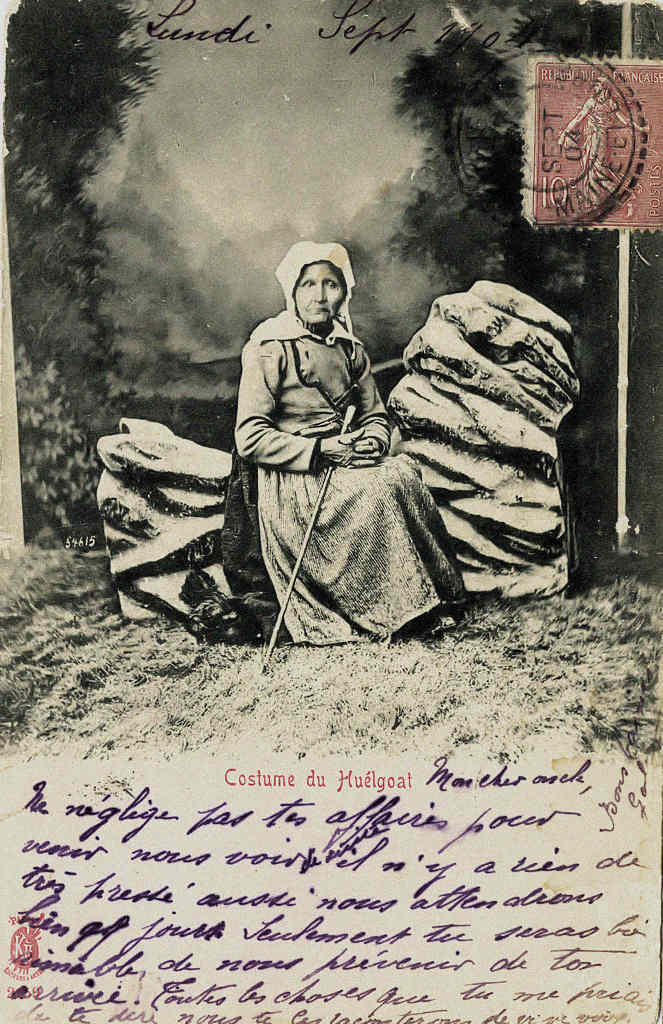 Lundi Sept 1904
REPUBLIQUE FRANÇAISE
10
POSTES
SEPT
04
MAINE-E
54615
Costume du Huélgoat
Mon cher oncle,
Ne néglige pas tes affaires pour
venir nous voir il n'y a rien de
très pressé aussi nous attendrons
bien qq jours seulement tu seras bi
aimable de nous prévenir de ton
arrivée. Toutes les choses que tu me priais
de te dire nous te les raconterons de vive voix.
Bons